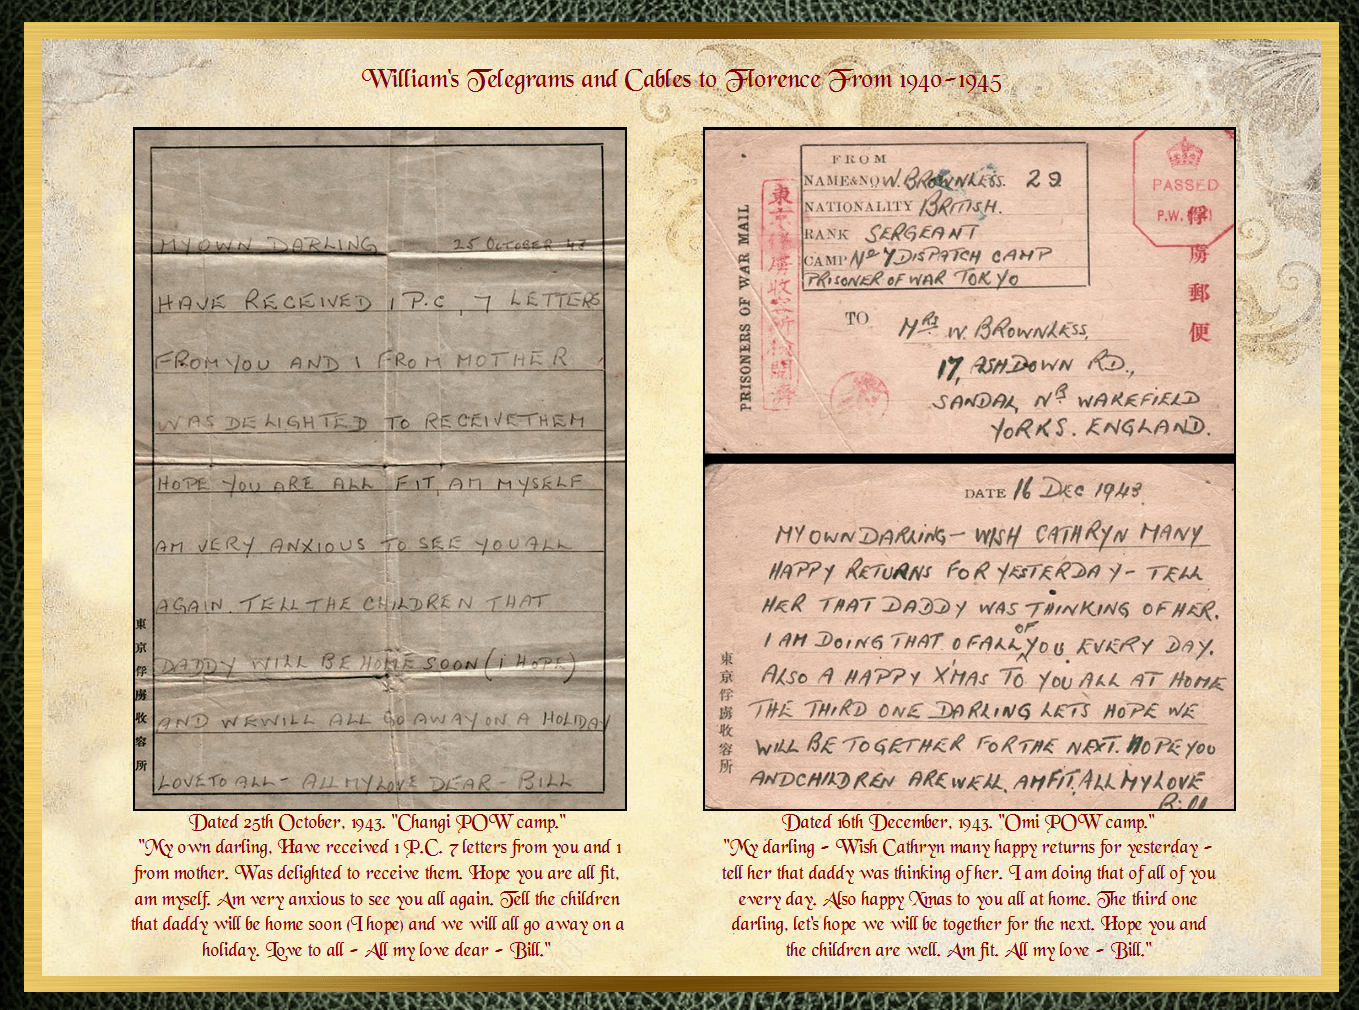 William's Telegrams and Cables to Florence From 1940-1945
MY OWN DARLING 25 OCTOBER 43
HAVE RECEIVED 1 P.C, 7 LETTERS
FROM YOU AND 1 FROM MOTHER
WAS DELIGHTED TO RECEIVE THEM
HOPE YOU ARE ALL FIT, AM MYSELF
AM VERY ANXIOUS TO SEE YOU ALL
AGAIN. TELL THE CHILDREN THAT
DADDY WILL BE HOME SOON (I HOPE)
AND WE WILL ALL GO AWAY ON A HOLIDAY
LOVE TO ALL - ALL MY LOVE DEAR - BILL
東京俘虜收容所
Dated 25th October, 1943. "Changi POW camp."
"My own darling, Have received 1 P.C. 7 letters from you and 1
from mother. Was delighted to receive them. Hope you are all fit,
am myself. Am very anxious to see you all again. Tell the children
that daddy will be home soon (I hope) and we will all go away on a
holiday. Love to all - All my love dear - Bill."
PRISONERS OF WAR MAIL
東京俘虜收容所検閲濟
FROM
NAME&NO W. BROWNLESS. 29
NATIONALITY BRITISH.
RANK SERGEANT
CAMP No 7 DISPATCH CAMP
PRISONER OF WAR TOKYO
PASSED
P.W.
俘虜郵便
TO MRS W. BROWNLESS,
17, ASHDOWN RD.,
SANDAL, NR WAKEFIELD
YORKS. ENGLAND.
DATE 16 DEC 1943
MY OWN DARLING - WISH CATHRYN MANY
HAPPY RETURNS FOR YESTERDAY - TELL
HER THAT DADDY WAS THINKING OF HER.
I AM DOING THAT OF ALL OF YOU EVERY DAY.
ALSO A HAPPY X'MAS TO YOU ALL AT HOME
THE THIRD ONE DARLING LETS HOPE WE
WILL BE TOGETHER FOR THE NEXT. HOPE YOU
AND CHILDREN ARE WELL. AM FIT. ALL MY LOVE
Bill
東京俘虜收容所
Dated 16th December, 1943. "Omi POW camp."
"My darling - Wish Cathryn many happy returns for yesterday -
tell her that daddy was thinking of her. I am doing that of all of you
every day. Also happy Xmas to you all at home. The third one
darling, let's hope we will be together for the next. Hope you and
the children are well. Am fit. All my love - Bill."